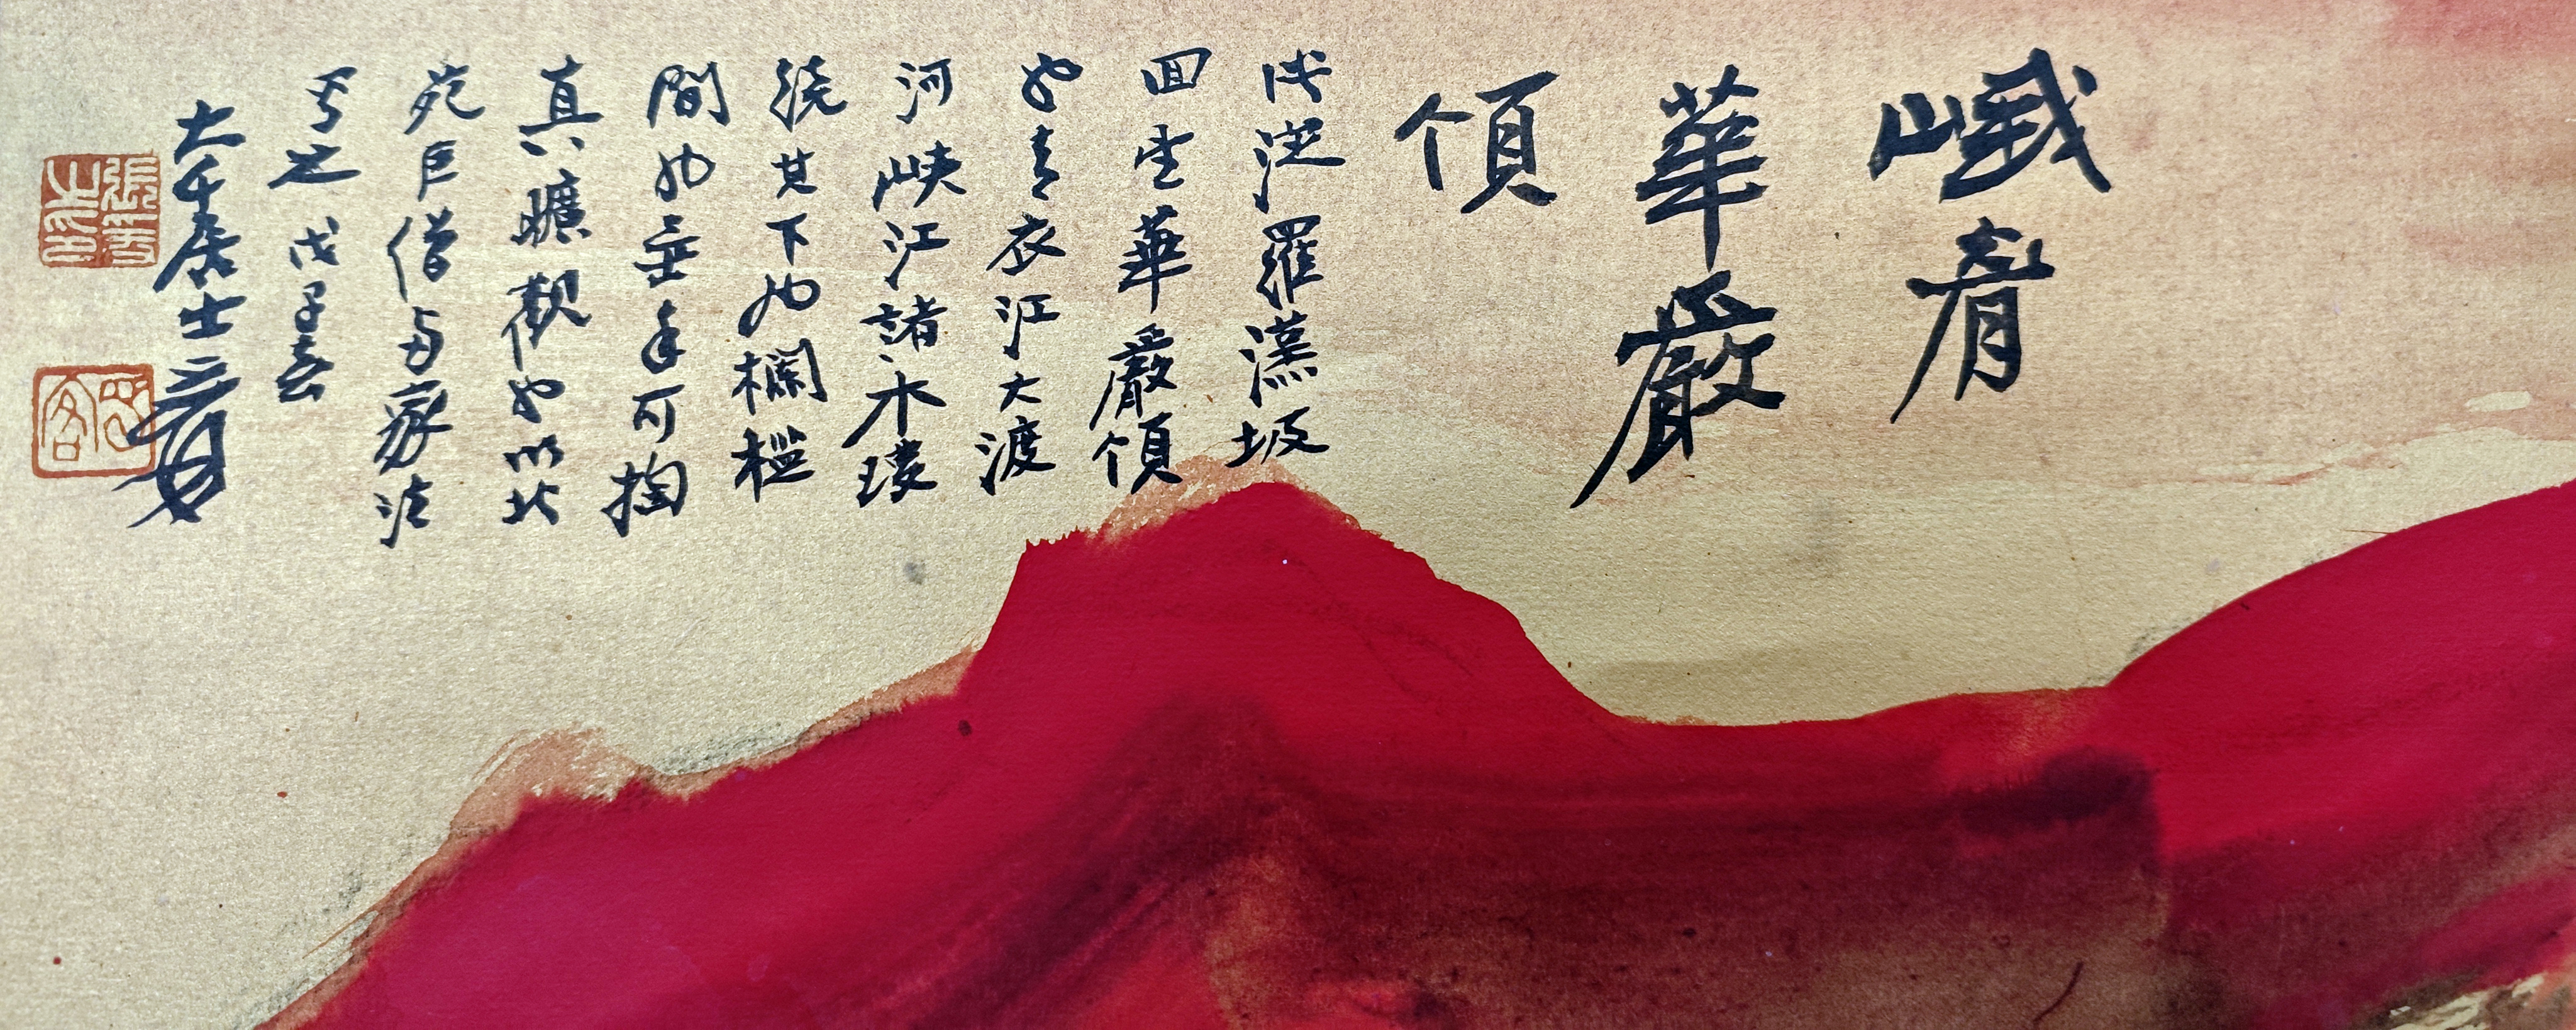 峨眉
華嚴
頂
從羅漢坡
回望華嚴頂
也青衣江大渡
河峽江諸水環
繞其下如欄檻
間如垂手可掬
真曠觀也以北
苑巨僧與家法
寫之戊子春
大千居士爰
張爰之印